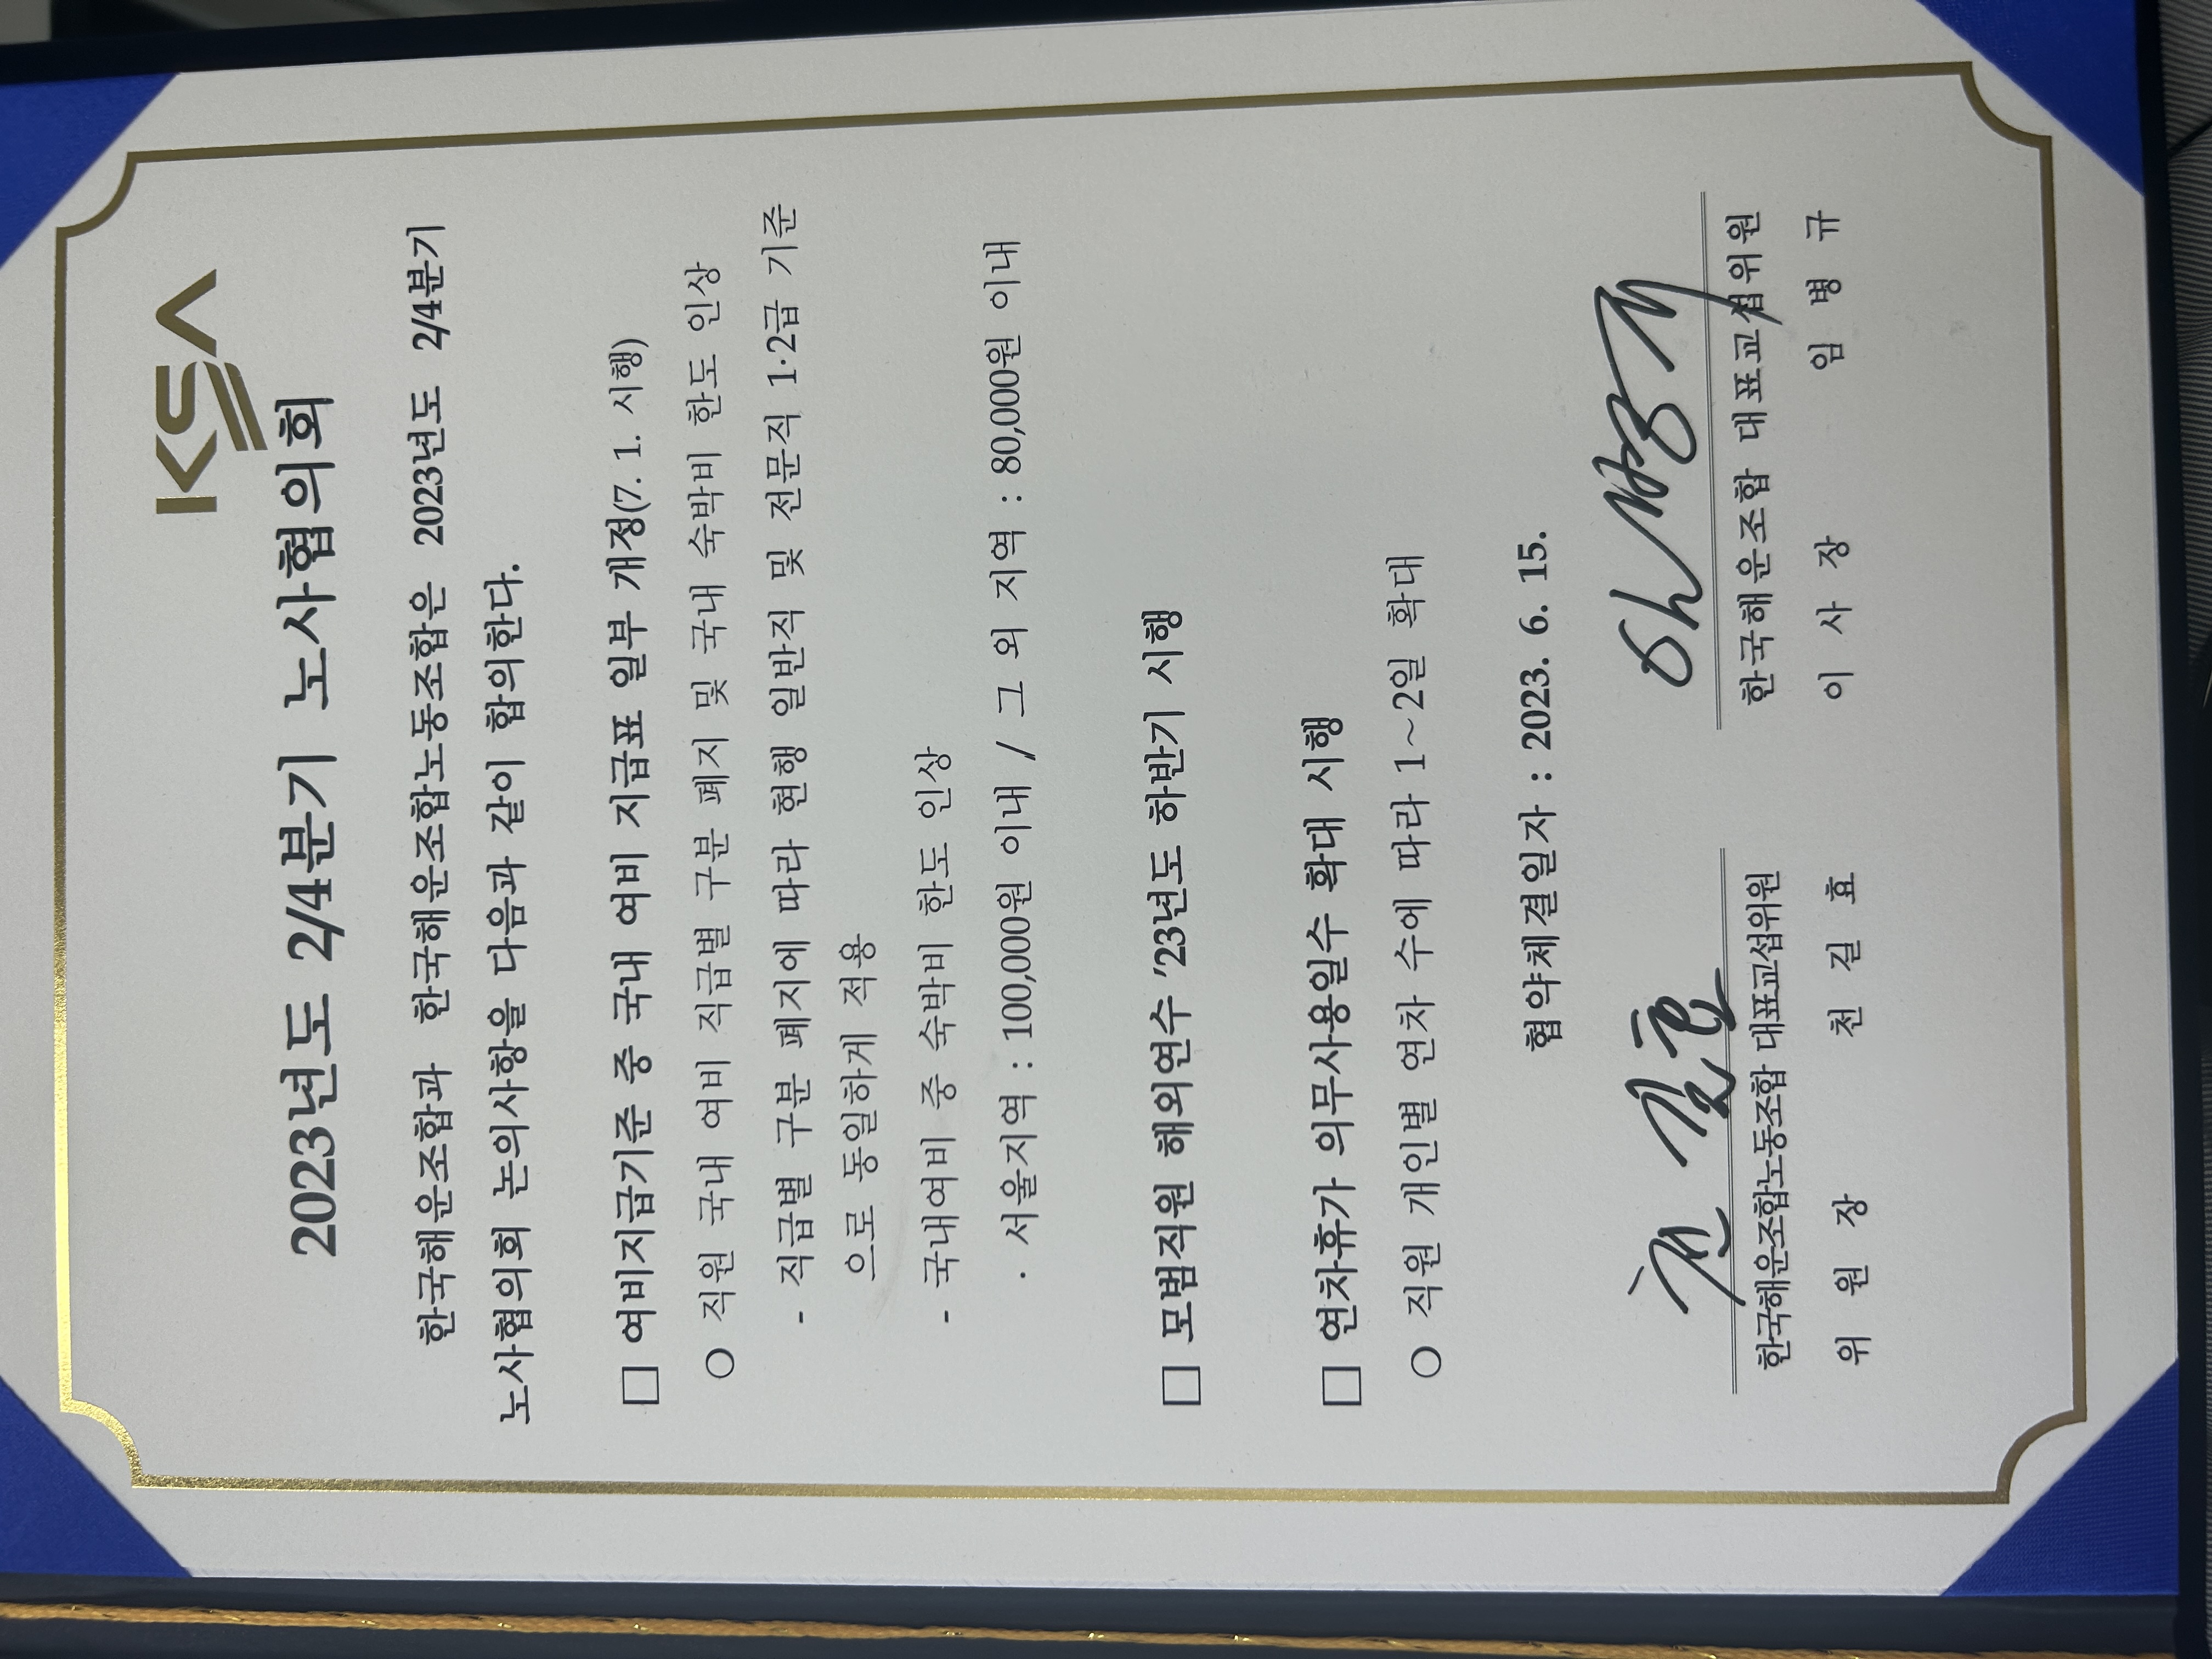 KSA
2023년도 2/4분기 노사협의회
한국해운조합과 한국해운조합노동조합은 2023년도 2/4분기
노사협의회 논의사항을 다음과 같이 합의한다.
□ 여비지급기준 중 국내 여비 지급표 일부 개정(7. 1. 시행)
○ 직원 국내 여비 직급별 구분 폐지 및 국내 숙박비 한도 인상
- 직급별 구분 폐지에 따라 현행 일반직 및 전문직 1·2급 기준
으로 동일하게 적용
- 국내여비 중 숙박비 한도 인상
· 서울지역 : 100,000원 이내 / 그 외 지역 : 80,000원 이내
□ 모범직원 해외연수 '23년도 하반기 시행
□ 연차휴가 의무사용일수 확대 시행
○ 직원 개인별 연차 수에 따라 1~2일 확대
협약체결일자 : 2023. 6. 15.
천길효
한국해운조합노동조합 대표교섭위원
위 원 장 천 길 효
임병규
한국해운조합 대표교섭위원
이 사 장 임 병 규